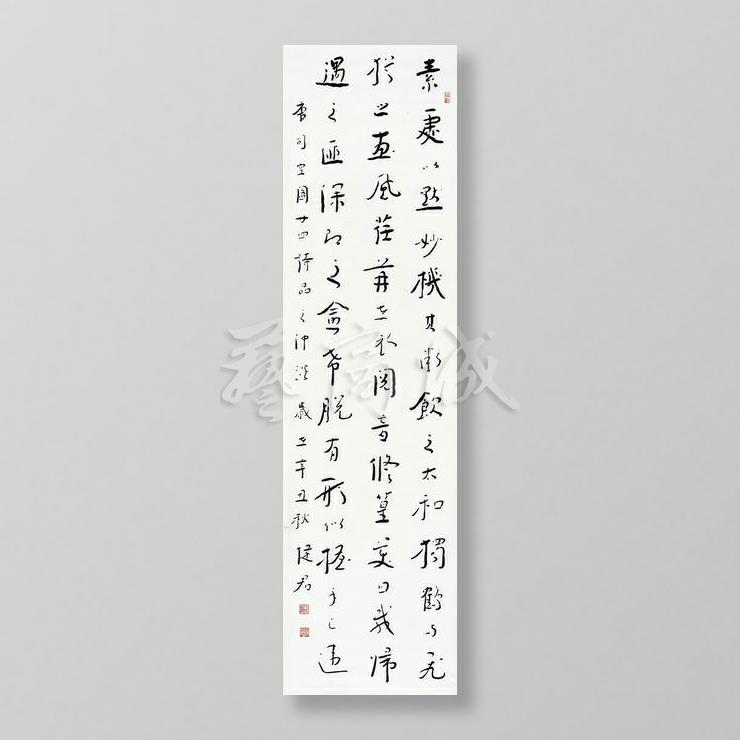 素處以默妙機其微飲之太和獨鶴与飛
猶之惠風荏苒在衣閱音修篁美曰載歸
遇之匪深即之愈希脱有形似握手已違
唐司空圖廿四詩品之沖淡 歲在辛丑秋 君
藝商城